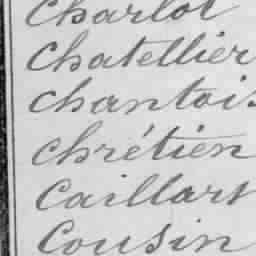 Charlot
Chatellier
Chantois
Chrétien
Caillart
Cousin